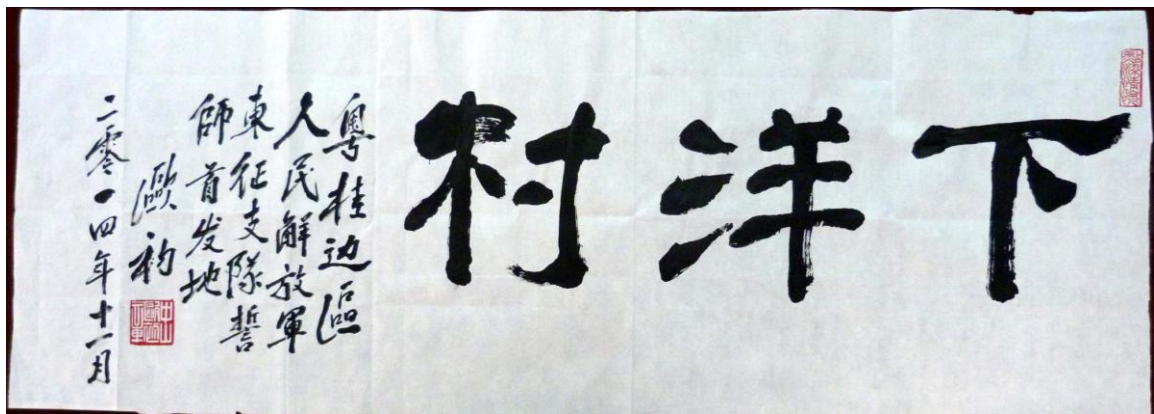 下洋村
粤桂边區
人民解放軍
東征支隊誓
師首发地
歐初
二零一四年十一月